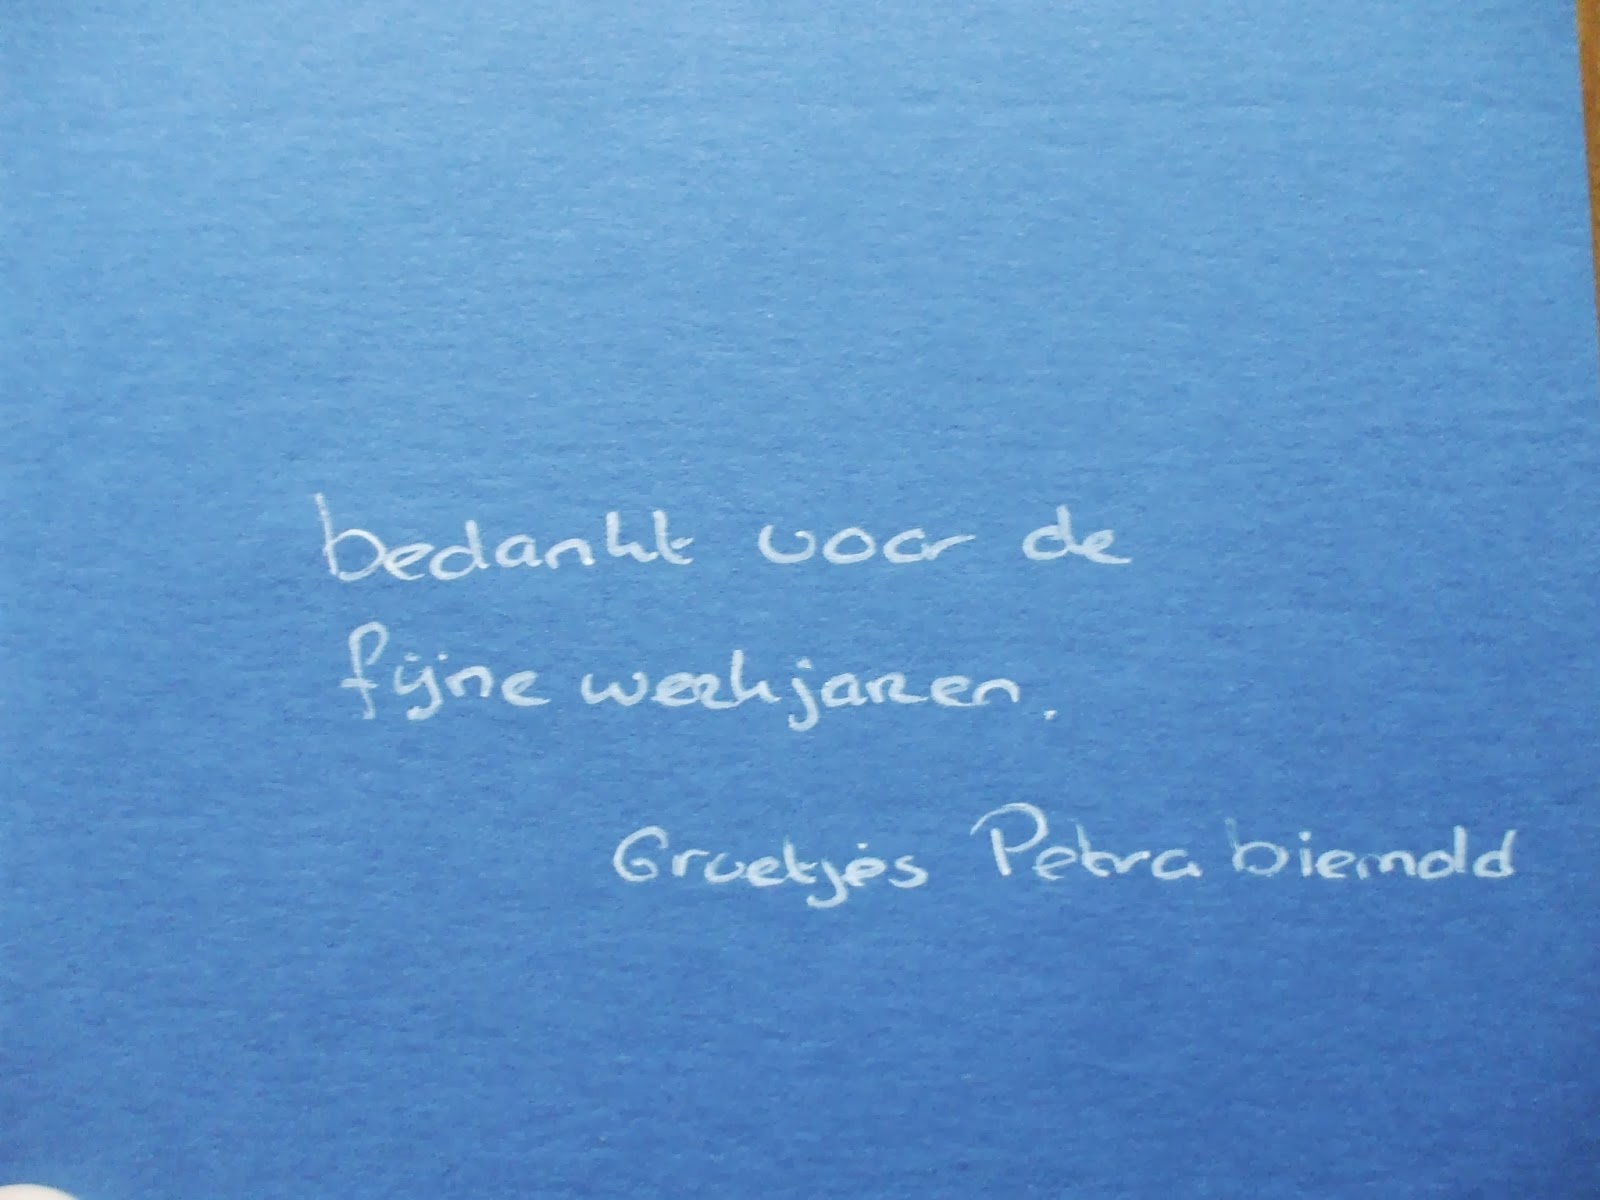 bedankt voor de
fijne werkjaren.
Groetjes Petra biemold